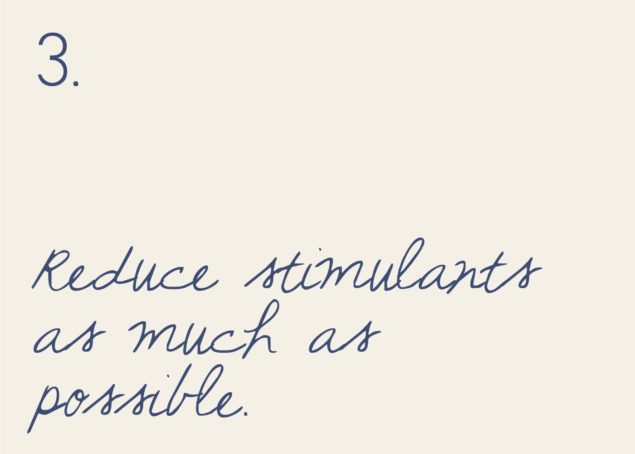 3.
Reduce stimulants
as much as
possible.